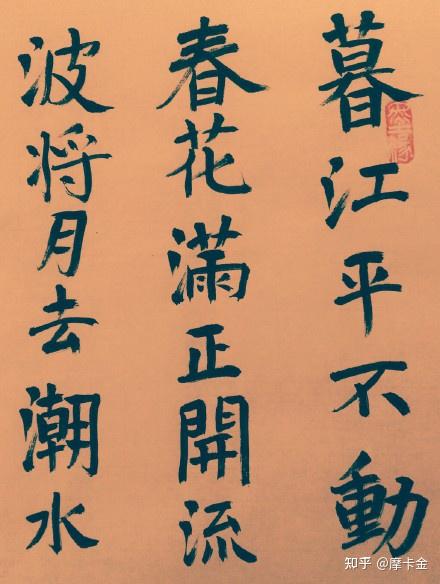 暮江平不動
春花滿正開流
波將月去潮水
知乎 @摩卡金